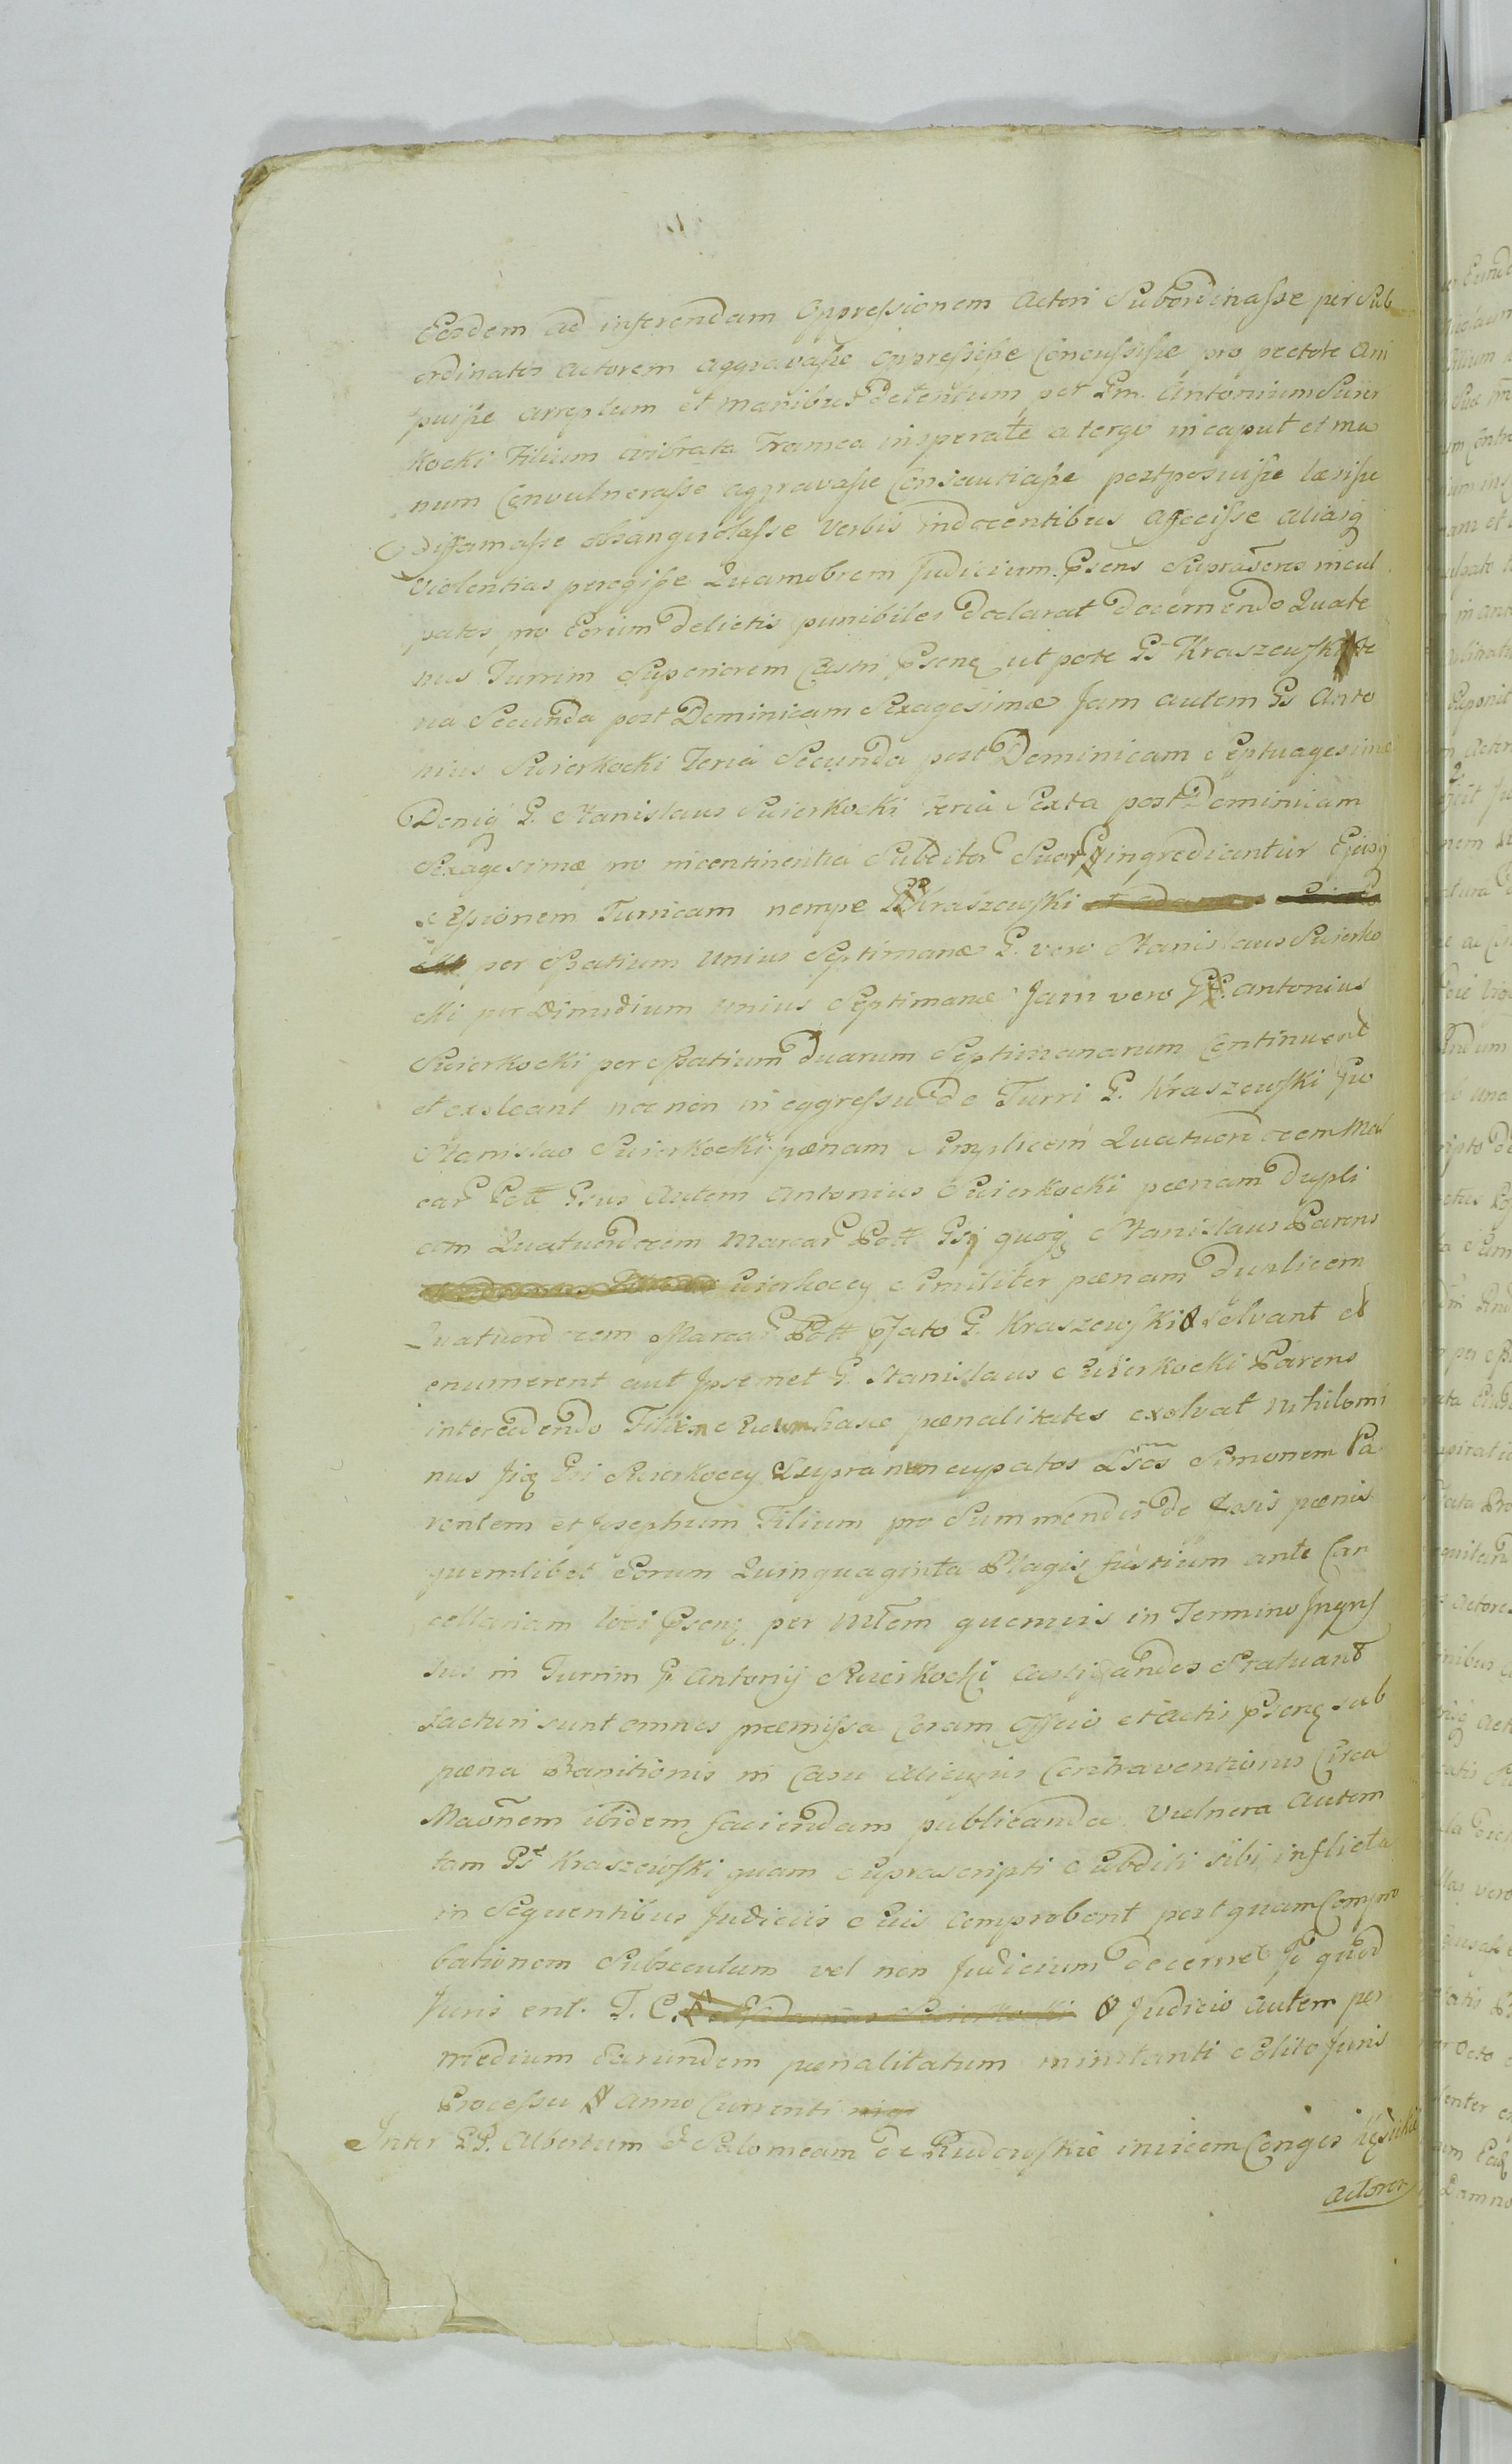 Eosdem ad inferendam Oppressionem Actori Subordinasse per Sub
ordinatos Actorem aggravasse oppressisse Concussisse pro pectore Arri
puisse arreptum et manibus detentum per Gm. Antonium Swier
kocki Filium vibrata Framea insperate a tergo in caput et ma
num Convulnerasse aggravasse Consauciasse postposuisse læsisse
Diffamasse verbis indecentibus Affecisse aliasq
violentias peregisse Quamobrem Judicium Psens incul
patos pro Eorum delictis punibiles declarat decernendo Quate
nus Turrim Superiorem Castri Psen utpote Gs Kraszewski fe
ria Secunda post Dominicam Sexagesimæ Jam autem Gs Anto
nius Swierkocki Feria Secunda post Dominicam Septuagesimæ
Deniq G. Stanislaus Swierkocki feria Sexta post Dominicam
Sexagesimæ pro incontinentia Subditor Suor ingrediantur Ejusq
Sessionem Turricam nempe G Kraszewski
per Spatium unius Septimanæ G. vero Stanislaus Swierko
cki per Dimidium unius Septimanæ Jam vero G. Antonius
Swierkocki per Spatium duarum Septimanarum Continuent
et expleant nec non in eggressu de Turri G. Kraszewski Gso
Stanislao Swierkocki pænam Simplicem Quatuordecem Mar
car Poll Gsus Autem Antonius Swierkocki pænam dupli
cem Quatuordecem Marcar Poll Gsq quoq Stanislaus Parens
Swierkoccy Similiter pænam duplicem
Quatuordecem Marcar Poll G. Kraszewski Solvant et
enumerent aut Ipsemet G. Stanislaus Swierkocki Parens
intercedendo Filium Suum hasce pænalitates exolvat nihilomi
nus Swierkoccy Supra nuncupatos Simonem Pa
rentem et Josephum Filium pro Summendis de pænis
quemlibet Eorum Quinquaginta Plagis fustium ante Can
cellariam loci Psen per quemvis in Termino
sus in Turrim G Antonij Swierkocki castigandos Statuant
facturi sunt omnes præmissa Coram Officio et Actis Psen sub
pæna Banitionis in Casu alicujus Contraventionis Circa
ibidem faciendam publicanda Vulnera Autem
tam Gs Kraszewski quam Suprascripti Subditi sibi inflicta
in Sequentibus Judiciis Suis comprobent post quam Compro
bationem Subsecutam vel non Judicium decernet Id quod
Juris erit. T. C. Judicio autem per
medium Earundem pænalitatum in instanti Solito Juris
Processu Anno Currenti
Inter GG. Albertum et Salomeam de Rudowskie invicem Conges
Actores